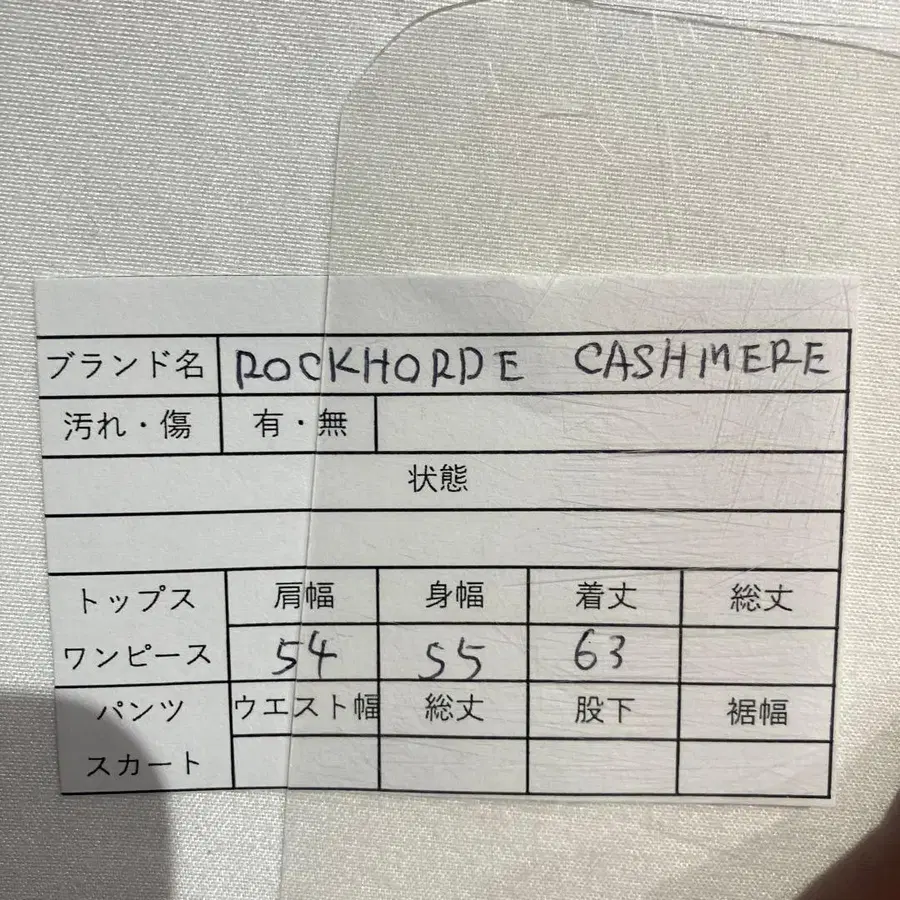 ブランド名 ROCKHORDE CASHMERE
汚れ・傷 有・無
状態
トップス 肩幅 身幅 着丈 総丈
ワンピース 54 55 63
パンツ ウエスト幅 総丈 股下 裾幅
スカート